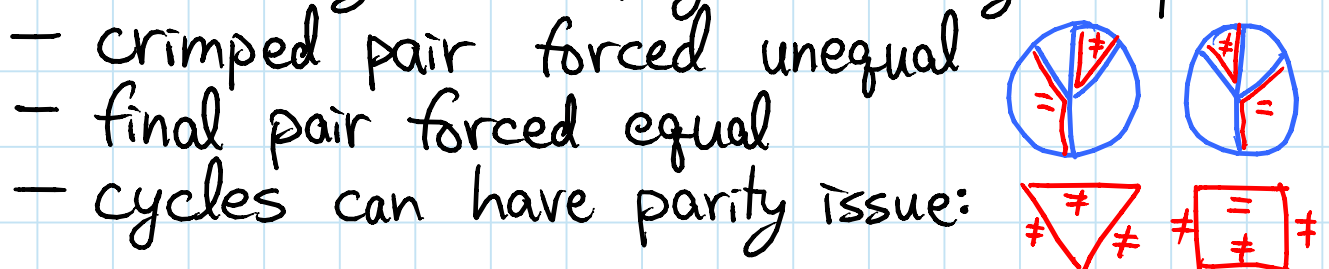 — crimped pair forced unequal ≠ ≠
— final pair forced equal = =
— cycles can have parity issue: ≠ =
≠ ≠ ≠ ≠ ≠